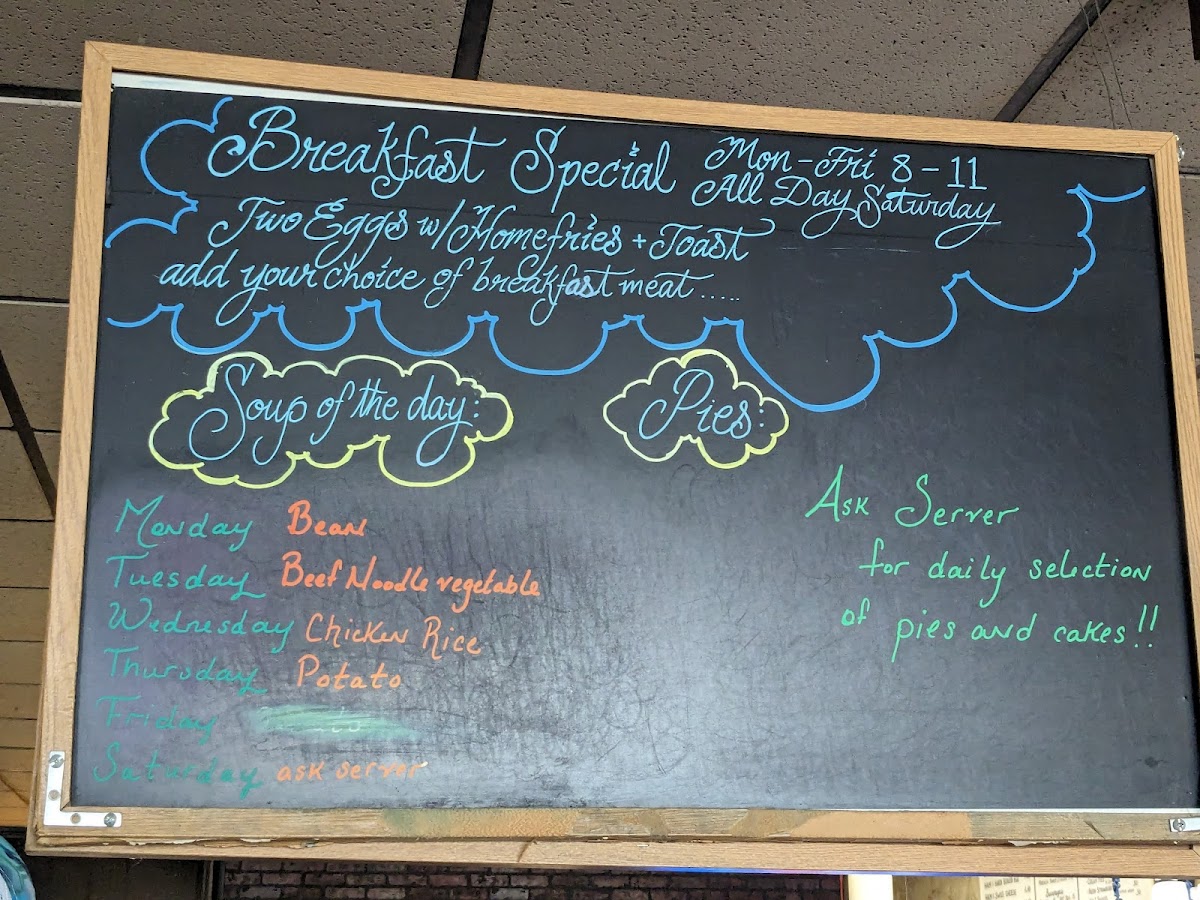 Breakfast Special Mon-Fri 8-11
All Day Saturday
Two Eggs w/Homefries + Toast
add your choice of breakfast meat .....
Soup of the day:
Monday Bean
Tuesday Beef Noodle vegetable
Wednesday Chicken Rice
Thursday Potato
Friday
Saturday ask server
Pies:
Ask Server
for daily selection
of pies and cakes!!